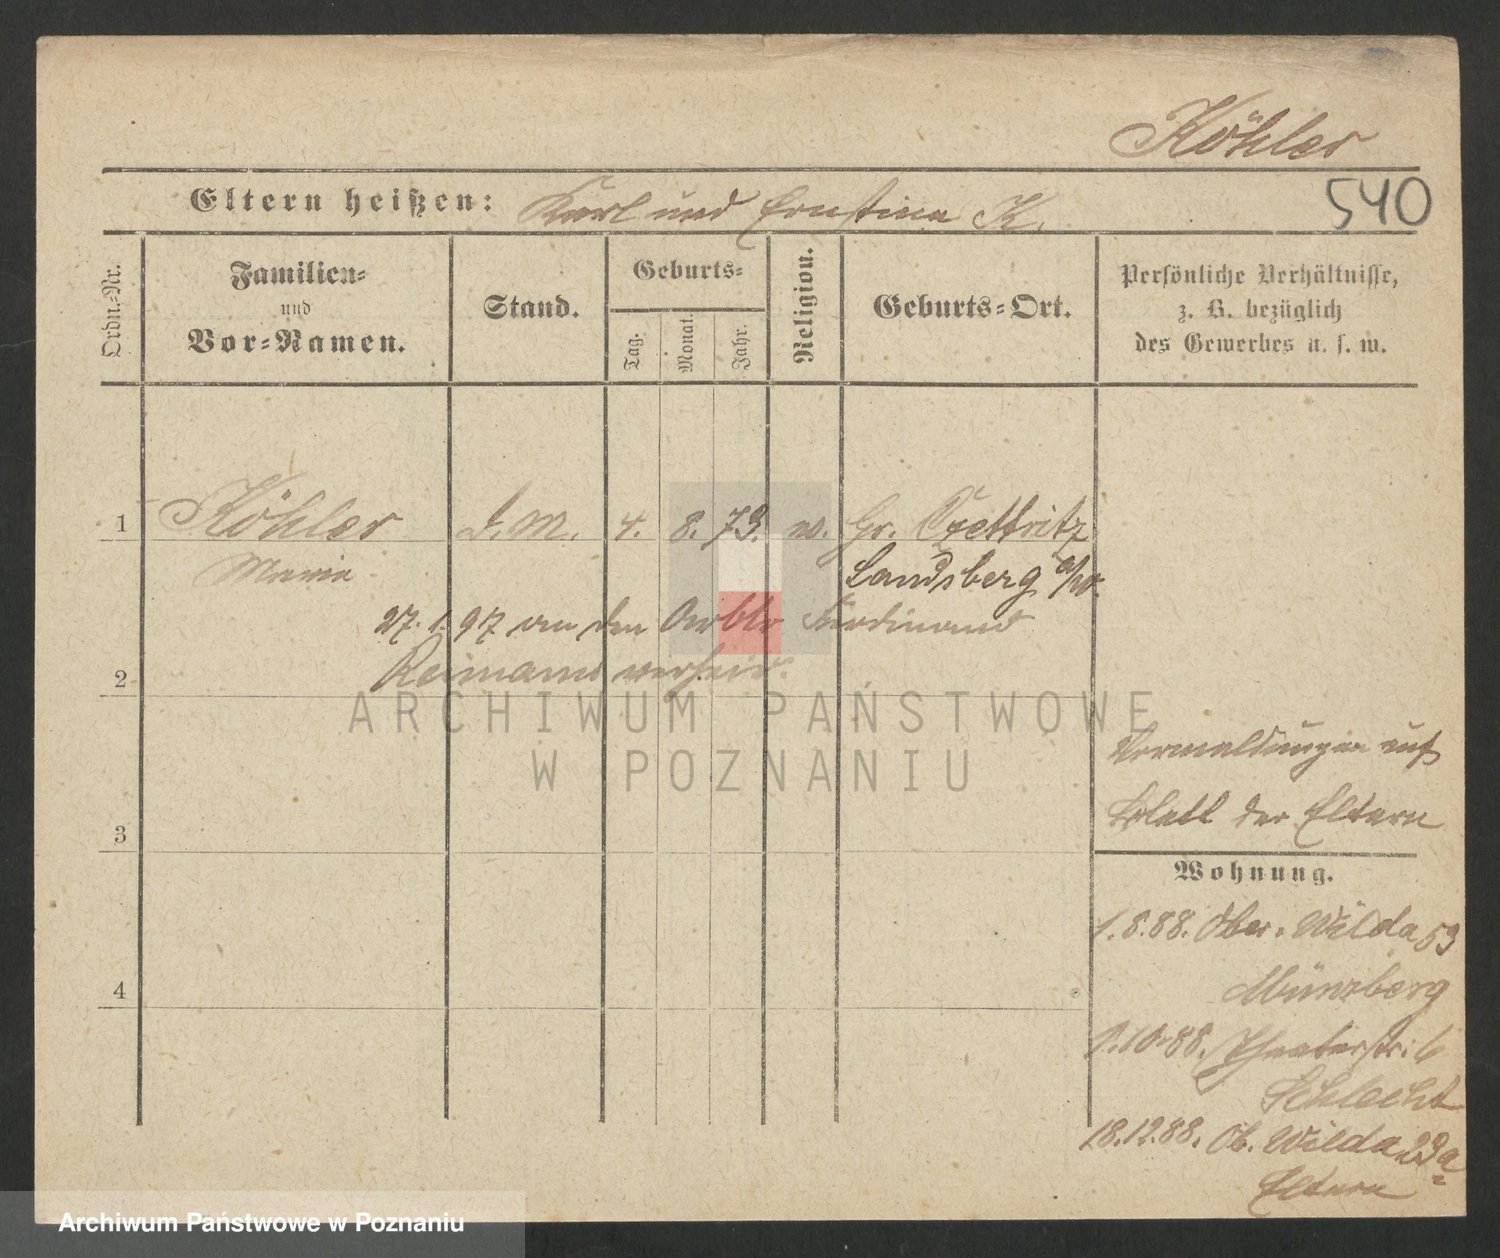 Köhler
540
Eltern heißen: Karl und Ernstine K.
Ordn.-Nr.
Familien-
und
Vor-Namen.
Stand.
Geburts-
Tag.
Monat.
Jahr.
Religion.
Geburts-Ort.
Persönliche Verhältnisse,
z. B. bezüglich
des Gewerbes u. s. w.
1 Köhler D.M. 4. 8. 73. ev. Gr. Czettritz
Marie Landsberg a/W.
27.1.97 an den Arbtr Ferdinand
Reimann verheir.
2
ARCHIWUM PAŃSTWOWE
W POZNANIU
Vermeldungen auf
Blatt der Eltern
3
Wohnung.
1.8.88. Ober-Wilda 59
Münzberg
4
1.10.88. Theaterstr. 6
Schlecht
18.12.88. Ob. Wilda 29a
Eltern
Archiwum Państwowe w Poznaniu